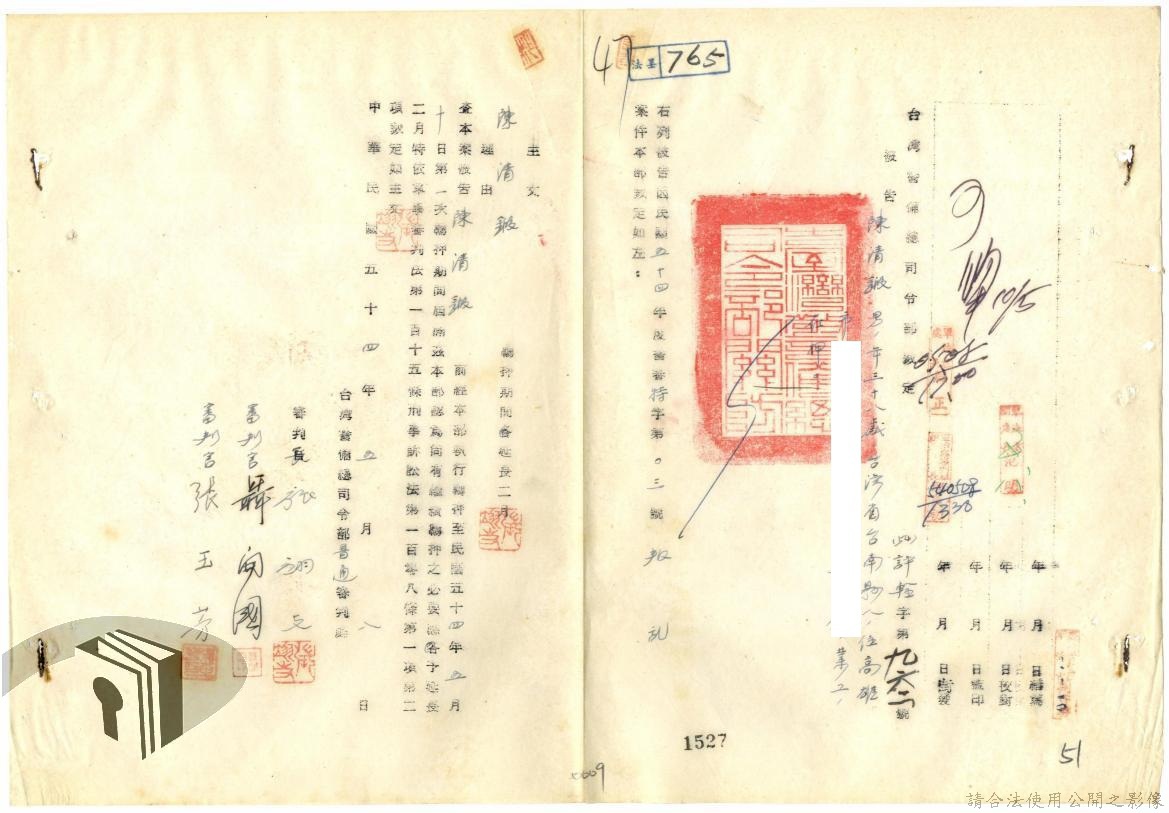 47
法墨
765
可
10/5
台灣警備總司令部裁定
此評輕字第九六一號
年 月 日
年 月 日校對
年 月 日蓋印
年 月 日
540508
1330
被告 陳清鍛 男 年三十八歲 台灣省台南縣人 住高雄
市
業工
在押
右列被告因民國五十四年度警審特字第〇三號 叛亂
案件本部裁定如左:
主文
陳清鍛 羈押期間各延長二月
理由
查本案被告陳清鍛 前經本部執行羈押至民國五十四年五月
十日第一次羈押期間屆滿茲本部認為尚有繼續羈押之必要應各予延長
二月特依軍事審判法第一百十五條刑事訴訟法第一百零八條第一項第二
項裁定如主文
中華民國五十四年五月八日
台灣警備總司令部普通審判庭
審判長 張
審判官 聶開國
審判官 張玉芳
1527
51
請合法使用公開之影像